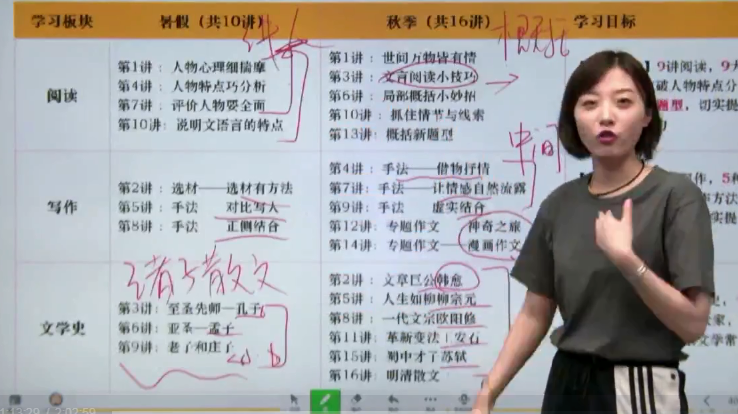 学习板块
暑假（共10讲）
秋季（共16讲）
学习目标
阅读
第1讲：人物心理细揣摩
第4讲：人物特点巧分析
第7讲：评价人物要全面
第10讲：说明文语言的特点
第1讲：世间万物皆有情
第3讲：文言阅读小技巧
第6讲：局部概括小妙招
第10讲：抓住情节与线索
第13讲：概括新题型
9讲阅读，9大
破人物特点分
题型，切实提
写作
第2讲：选材——选材有方法
第5讲：手法 对比写人
第8讲：手法 正侧结合
第4讲：手法——借物抒情
第7讲：手法——让情感自然流露
第9讲：手法 虚实结合
第12讲：专题作文 神奇之旅
第14讲：专题作文——漫画作文
中间
诸子散文
文学史
第3讲：至圣先师—孔子
第6讲：亚圣—孟子
第9讲：老子和庄子
第2讲：文章巨公韩愈
第5讲：人生如柳柳宗元
第8讲：一代文宗欧阳修
第11讲：革新变法王安石
第15讲：蜀中才子苏轼
第16讲：明清散文